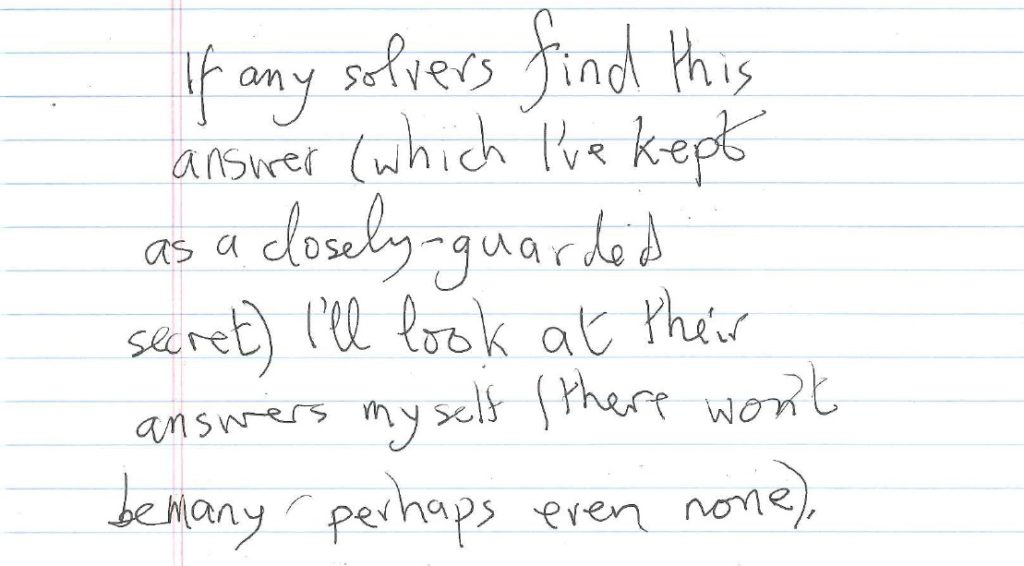 If any solvers find this
answer (which I've kept
as a closely-guarded
secret) I'll look at their
answers myself (there won't
be many - perhaps even none).